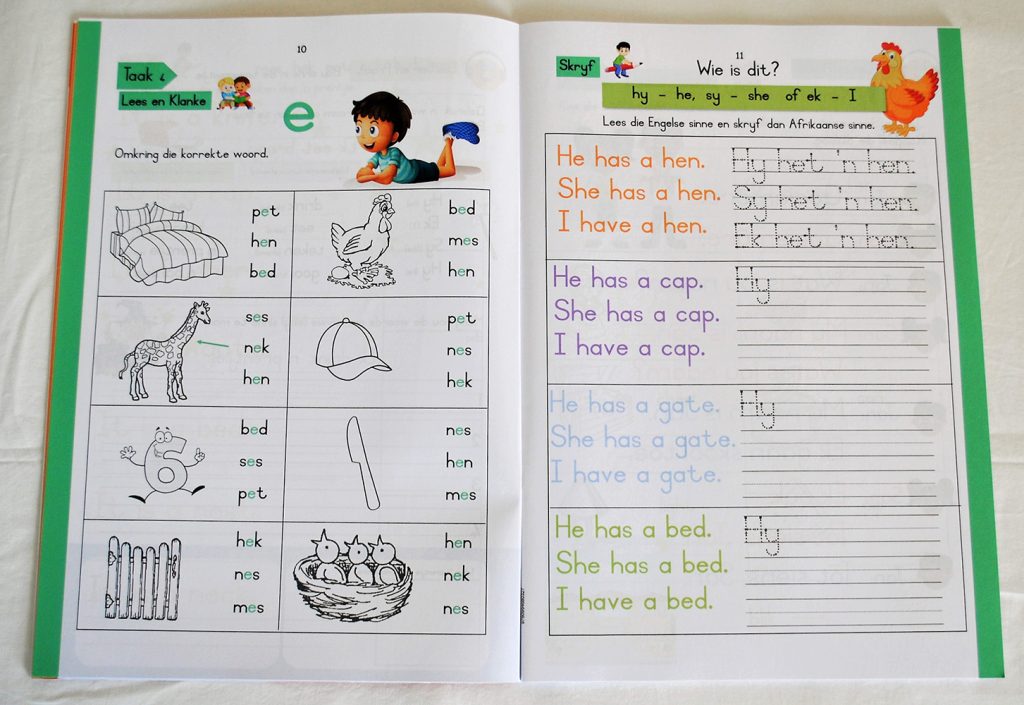 10
Taak
Lees en Klanke
e
Omkring die korrekte woord.
pet
hen
bed
bed
mes
hen
ses
nek
hen
pet
nes
hek
6
bed
ses
pet
nes
hen
mes
hek
nes
mes
hen
nek
nes
11
Skryf
Wie is dit?
hy - he, sy - she of ek - I
Lees die Engelse sinne en skryf dan Afrikaanse sinne.
He has a hen. Hy het 'n hen.
She has a hen. Sy het 'n hen.
I have a hen. Ek het 'n hen.
He has a cap. Hy
She has a cap.
I have a cap.
He has a gate. Hy
She has a gate.
I have a gate.
He has a bed. Hy
She has a bed.
I have a bed.